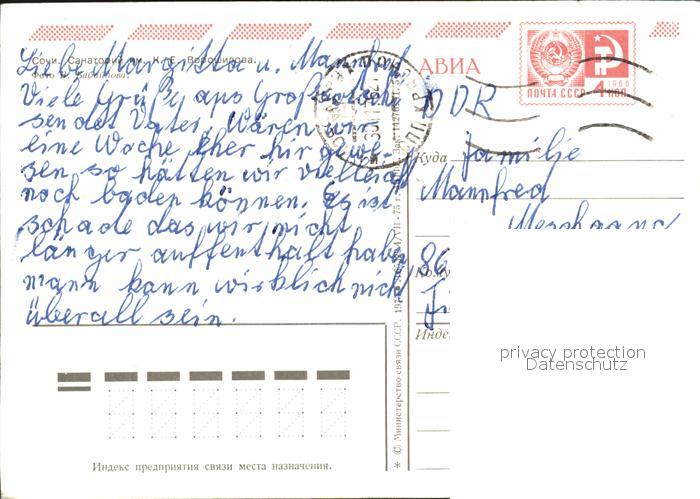 Сочи. Санаторий им. К. Е. Ворошилова.
Фото
Liebe Margitta u. Mannfred
Viele Grüße aus Großsotschi
sendet Vater. Wären wir
eine Woche eher hir gewe-
sen so hätten wir vielleicht
noch baden können. Es ist
schade das wir nicht
länger auffenthalt haben
mann kann wirklich nicht
überall sein.
АВИА
ПОЧТА СССР 4 КОП
1966
DDR
Куда
Familie
Mannfred
Кому
86
Инде
privacy protection
Datenschutz
© Министерство связи СССР, 197
Индекс предприятия связи места назначения.